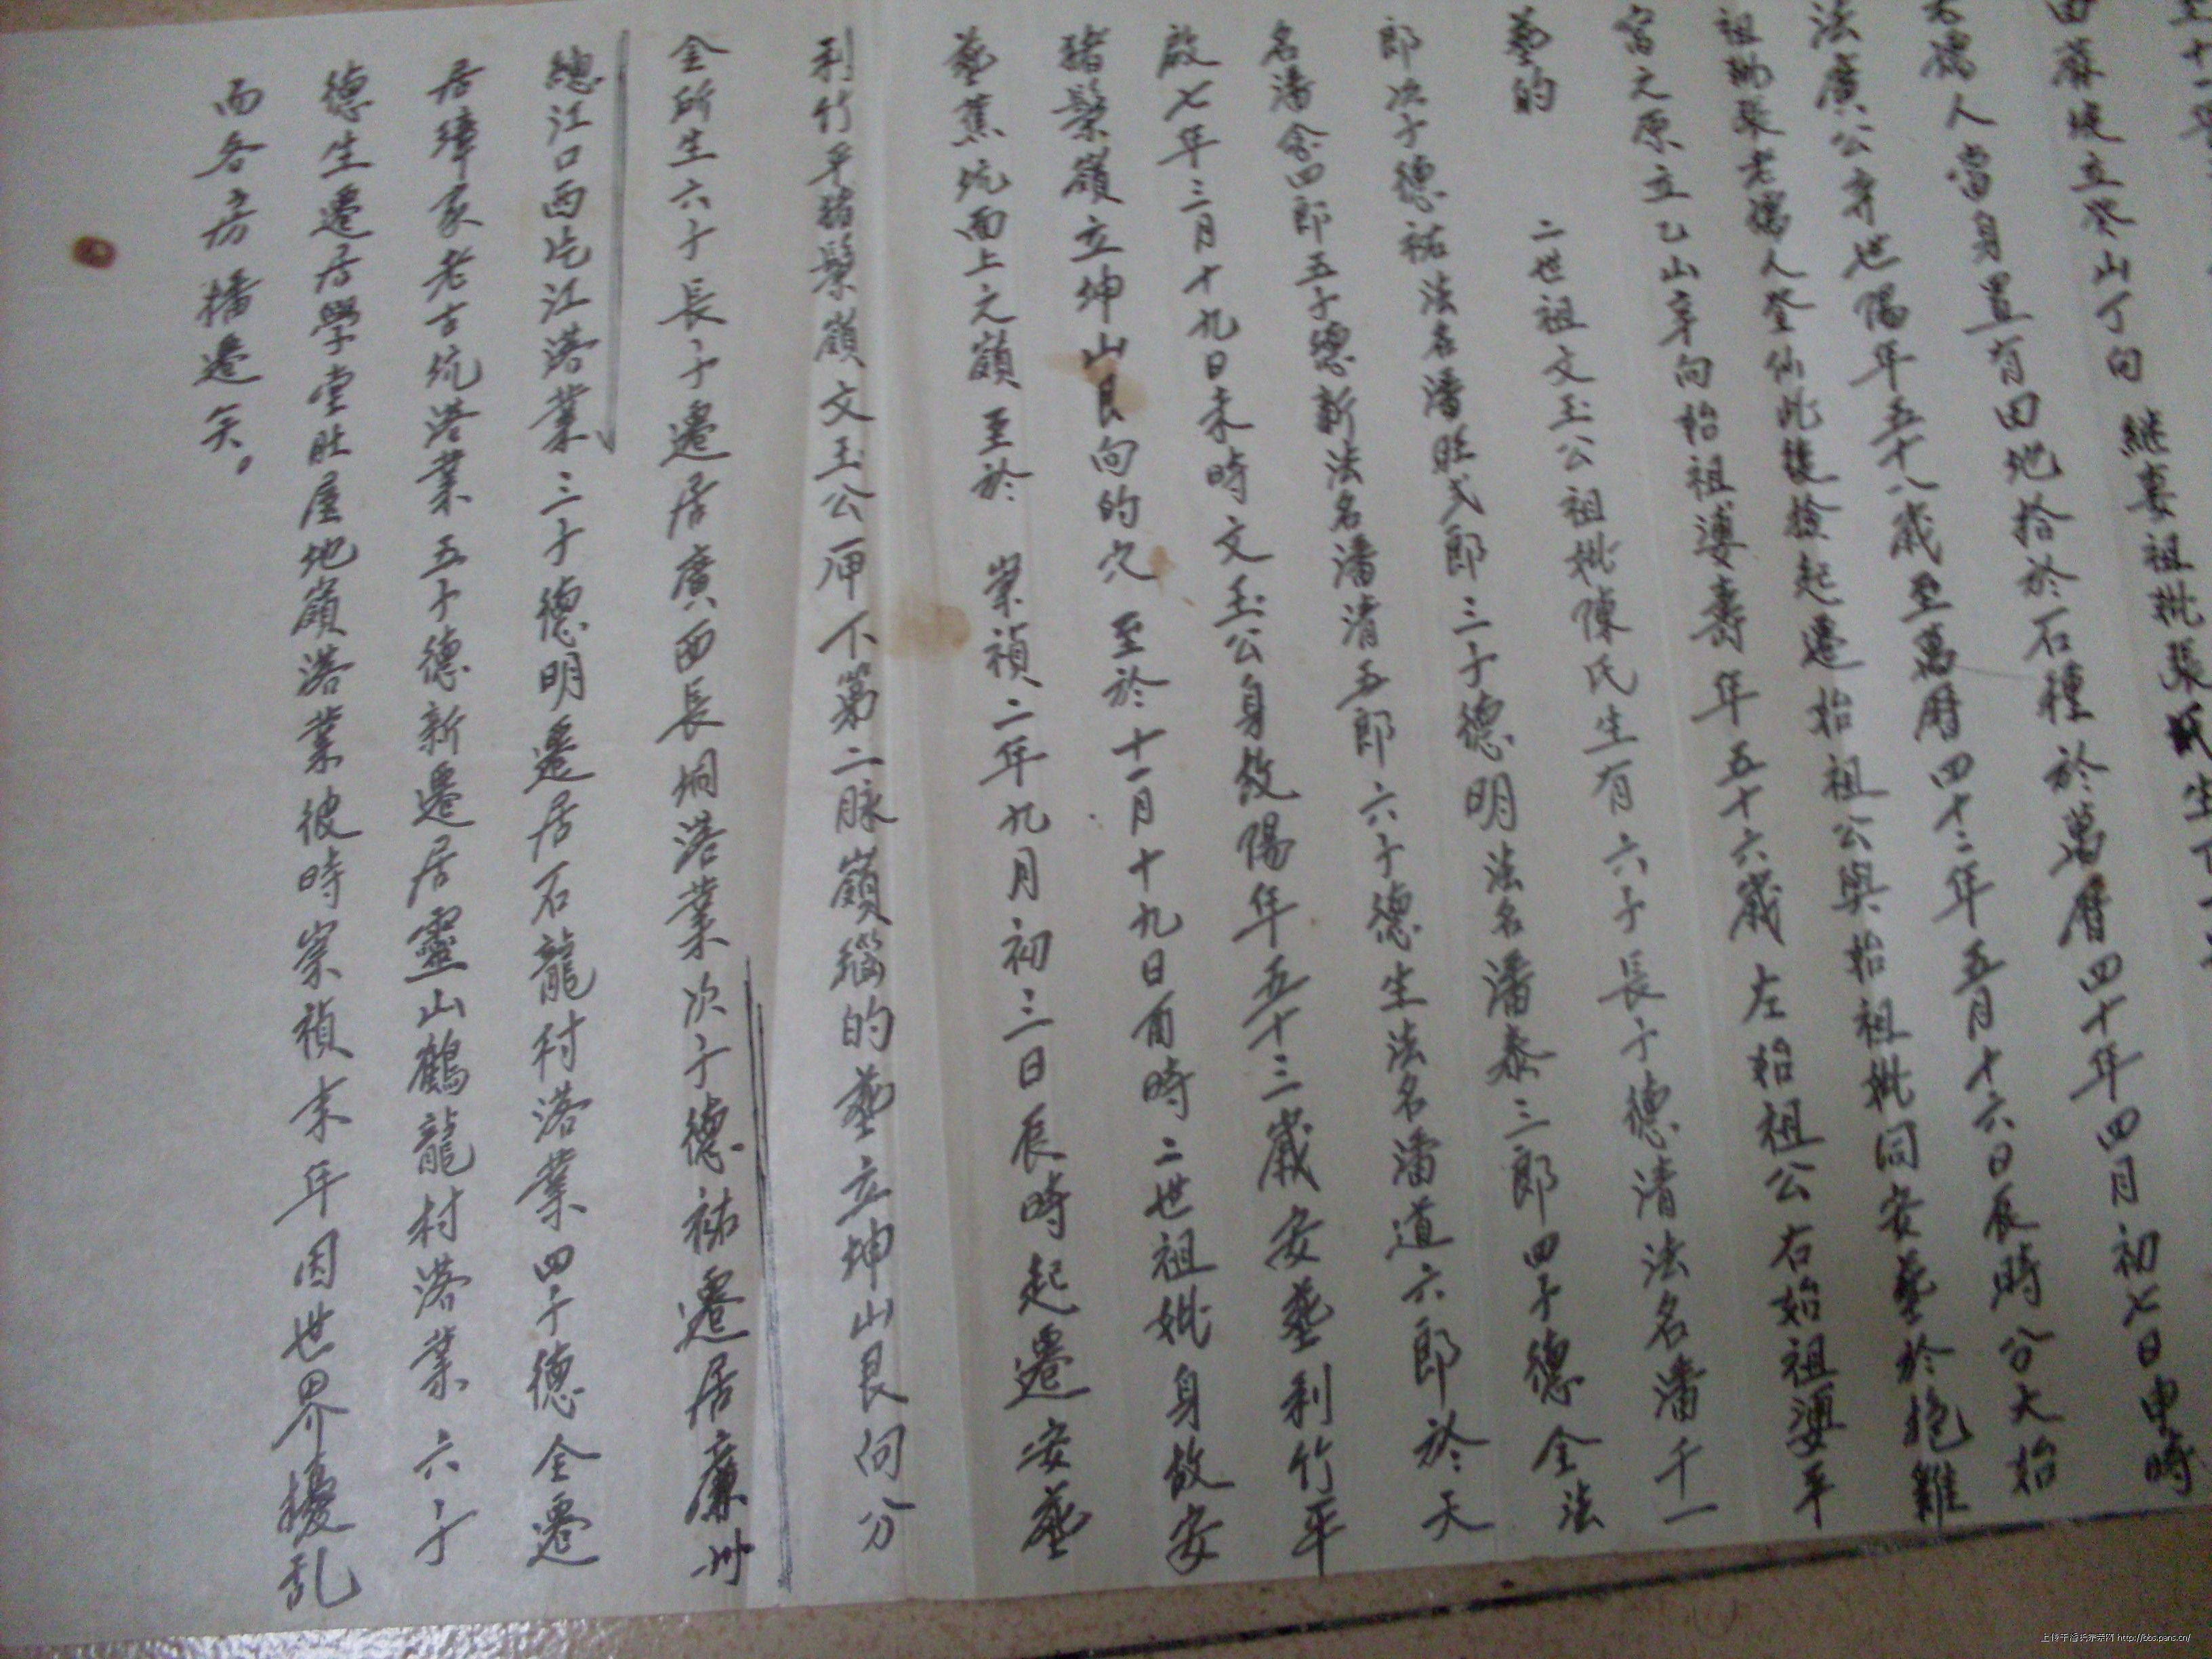 至十一年
田蔴墩立癸山丁向 継妻祖妣張氏生下一
老孺人當身置有田地拾於石種於萬曆四十年四月初七日申時
法廣公辛世陽年五十八歲至萬曆四十二年五月十六日辰時分大始
祖勅張老孺人登仙此後撿起遷始祖公與始祖妣同安塟於抱雞
窩之原立乙山辛向始祖婆壽年五十六歲左始祖公右始祖婆平
塟的 二世祖文玉公祖妣陳氏生有六子長子德清法名潘千一
郎次子德祐法名潘旺弍郎三子德明法名潘泰三郎四子德全法
名潘念四郎五子德新法名潘清五郎六子德生法名潘道六郎於天
啟七年三月十九日未時文玉公身故陽年五十三歲安塟利竹平
豬鬃嶺立坤山艮向的穴至於十一月十九日酉時二世祖妣身故安
塟蕉坑面上之嶺至於 崇禎二年九月初三日辰時起遷安塟
利竹平豬鬃嶺文玉公一穴下第二脉嶺的塟立坤山艮向分
金所生六子長子遷居廣西長垌落業次子德祐遷居廉州
總江口西江落業三子德明遷居石龍村落業四子德全遷
居璋家老古坑落業五子德新遷居靈山鶴龍村落業六子
德生遷居學堂肚屋地嶺落業彼時崇禎末年因世界擾乱
而各房播遷矣。
上传于潘氏宗亲网 http://bbs.pans.cn/